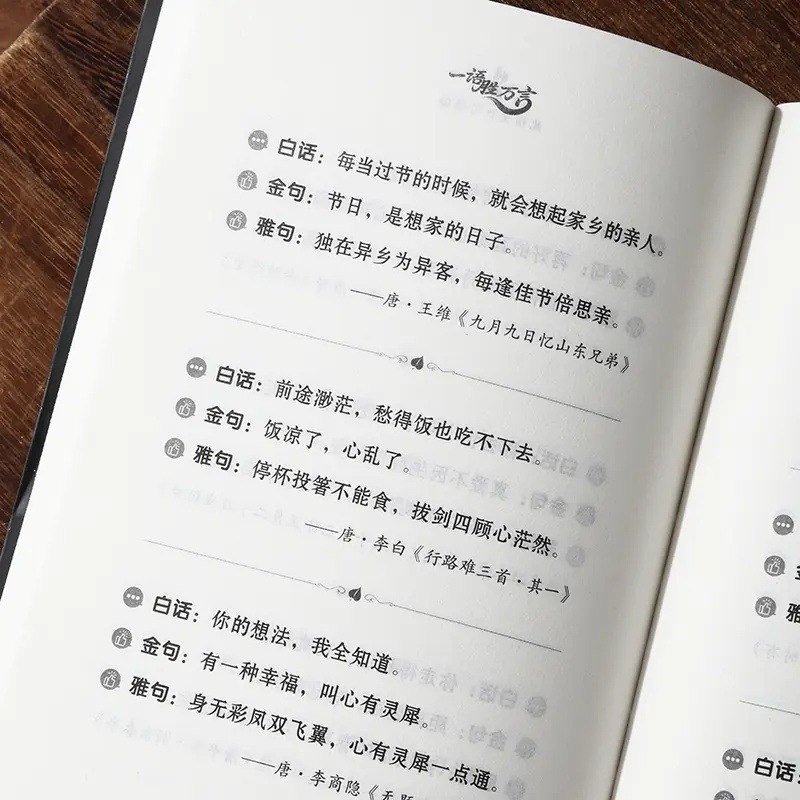 一语胜万言
白话：每当过节的时候，就会想起家乡的亲人。
金句：节日，是想家的日子。
雅句：独在异乡为异客，每逢佳节倍思亲。
——唐·王维《九月九日忆山东兄弟》
白话：前途渺茫，愁得饭也吃不下去。
金句：饭凉了，心乱了。
雅句：停杯投箸不能食，拔剑四顾心茫然。
——唐·李白《行路难三首·其一》
白话：你的想法，我全知道。
金句：有一种幸福，叫心有灵犀。
雅句：身无彩凤双飞翼，心有灵犀一点通。
——唐·李商隐《无题
金
雅
白话：